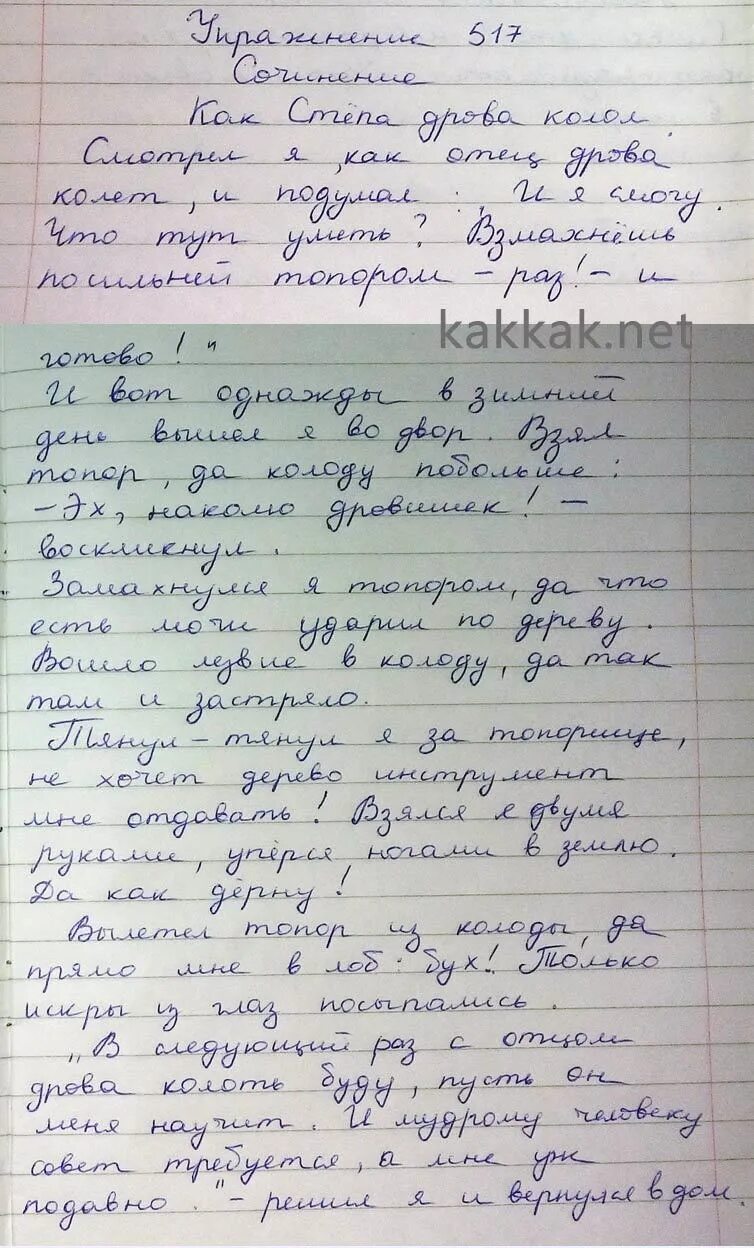 Упражнение 517
Сочинение
Как Стёпа дрова колол
Смотрел я, как отец дрова
колет, и подумал: И я смогу.
Что тут уметь? Взмахнёшь
посильней топором – раз! – и
kakkak.net
готово!"
И вот однажды в зимний
день вышел я во двор. Взял
топор, да колоду побольше:
– Эх, наколю дровишек! –
воскликнул.
Замахнулся я топором, да что
есть мочи ударил по дереву.
Вошло лезвие в колоду, да так
там и застряло.
Тянул – тянул я за топорище,
не хочет дерево инструмент
мне отдавать! Взялся я двумя
руками, упёрся ногами в землю.
Да как дёрну!
Вылетел топор из колоды, да
прямо мне в лоб: бух! Только
искры из глаз посыпались.
„В следующий раз с отцом
дрова колоть буду, пусть он
меня научит. И мудрому человеку
совет требуется, а мне уж
подавно." – решил я и вернулся в дом.